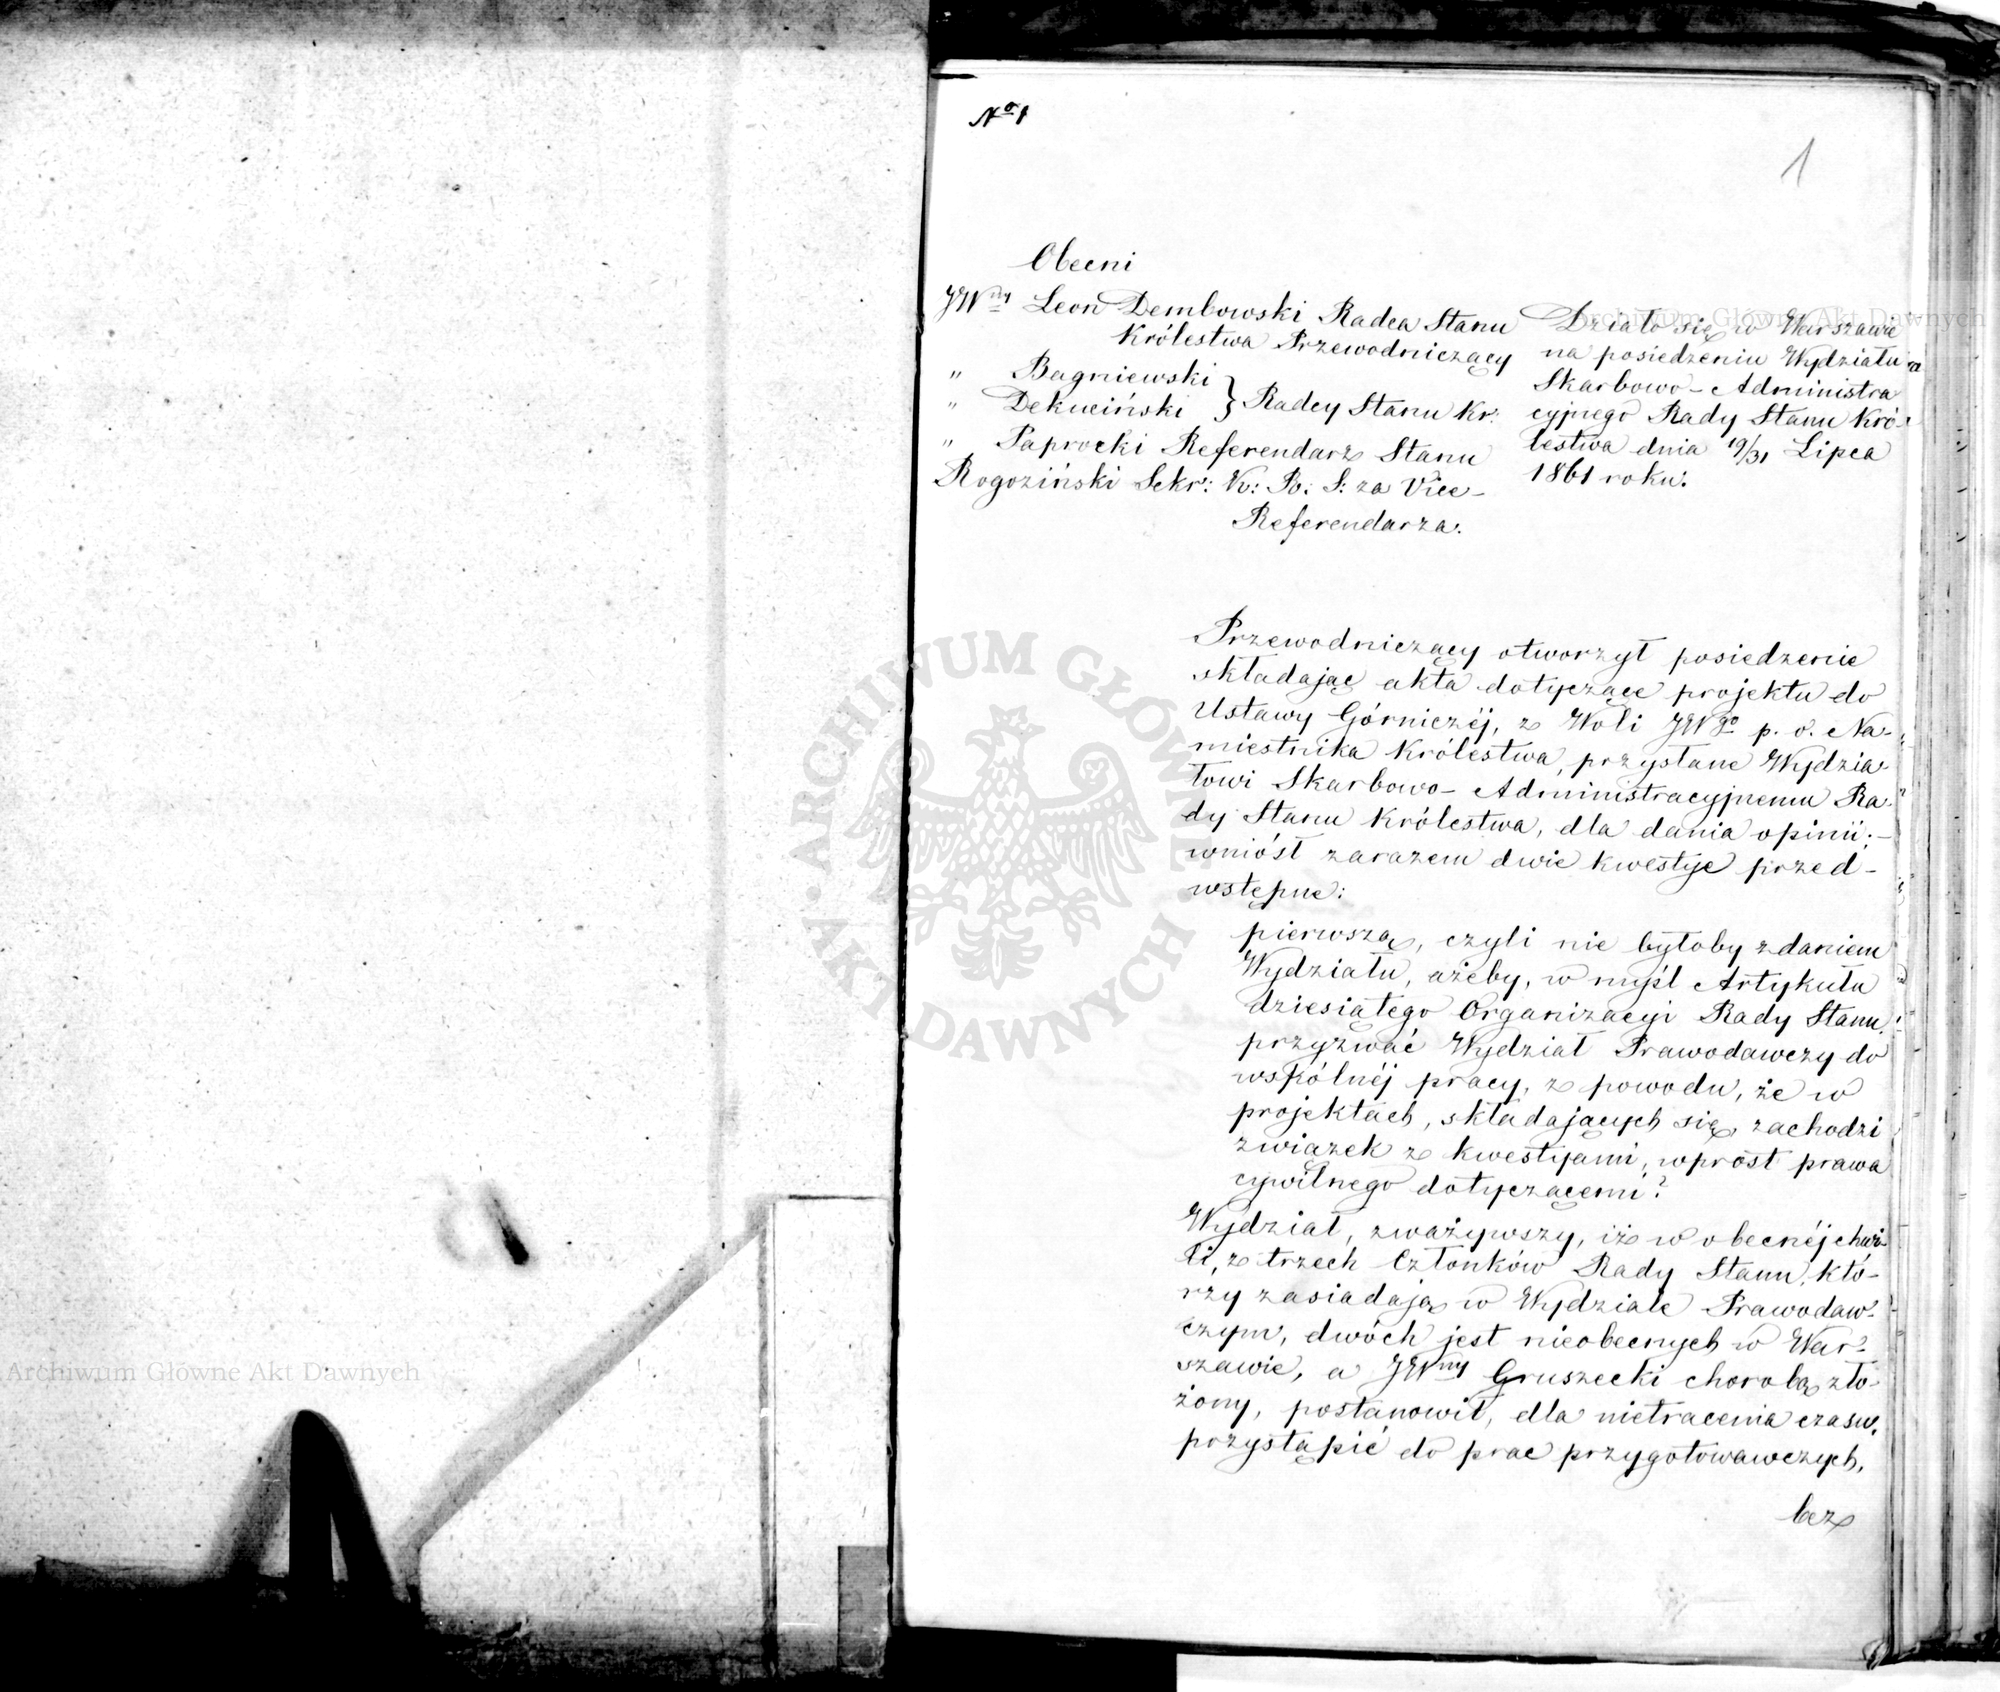 Nº 1
1
Obecni
JWny Leon Dembowski Radca Stanu
Królestwa Przewodniczący
" Bagniewski
" Dekuciński } Radcy Stanu Kr:
" Paprocki Referendarz Stanu
Rogoziński Sekr: K: R: S: za Vice-
Referendarza.
Działo się w Warszawie
na posiedzeniu Wydziału
Skarbowo-Administra
cyjnego Rady Stanu Kró-
lestwa dnia 19/31 Lipca
1861 roku.
Przewodniczący otworzył posiedzenie
składając akta dotyczące projektu do
Ustawy Górniczéj, z Woli JWgo p. o. Na-
miestnika Królestwa, przysłane Wydzia-
łowi Skarbowo-Administracyjnemu Ra-
dy Stanu Królestwa, dla dania opinii;-
wniósł zarazem dwie kwestye przed-
wstępne:
pierwszą, czyli nie byłoby zdaniem
Wydziału, ażeby, w myśl Artykułu
dziesiątego Organizacyi Rady Stanu,
przyzwać Wydział Prawodawczy do
wspólnéj pracy, z powodu, że w
projektach, składających się, zachodzi
związek z kwestyjami, wprost prawa
cywilnego dotyczącemi?
Wydział, zważywszy, iż w obecnéj chwi-
li, z trzech Członków Rady Stanu, któ-
rzy zasiadają w Wydziale Prawodaw-
czym, dwóch jest nieobecnych w War-
szawie, a JWny Gruszecki chorobą zło-
żony, postanowił, dla nietracenia czasu,
przystąpić do prac przygotowawczych,
bez
Archiwum Główne Akt Dawnych
Archiwum Główne Akt Dawnych
ARCHIWUM GŁÓWNE
AKT DAWNYCH